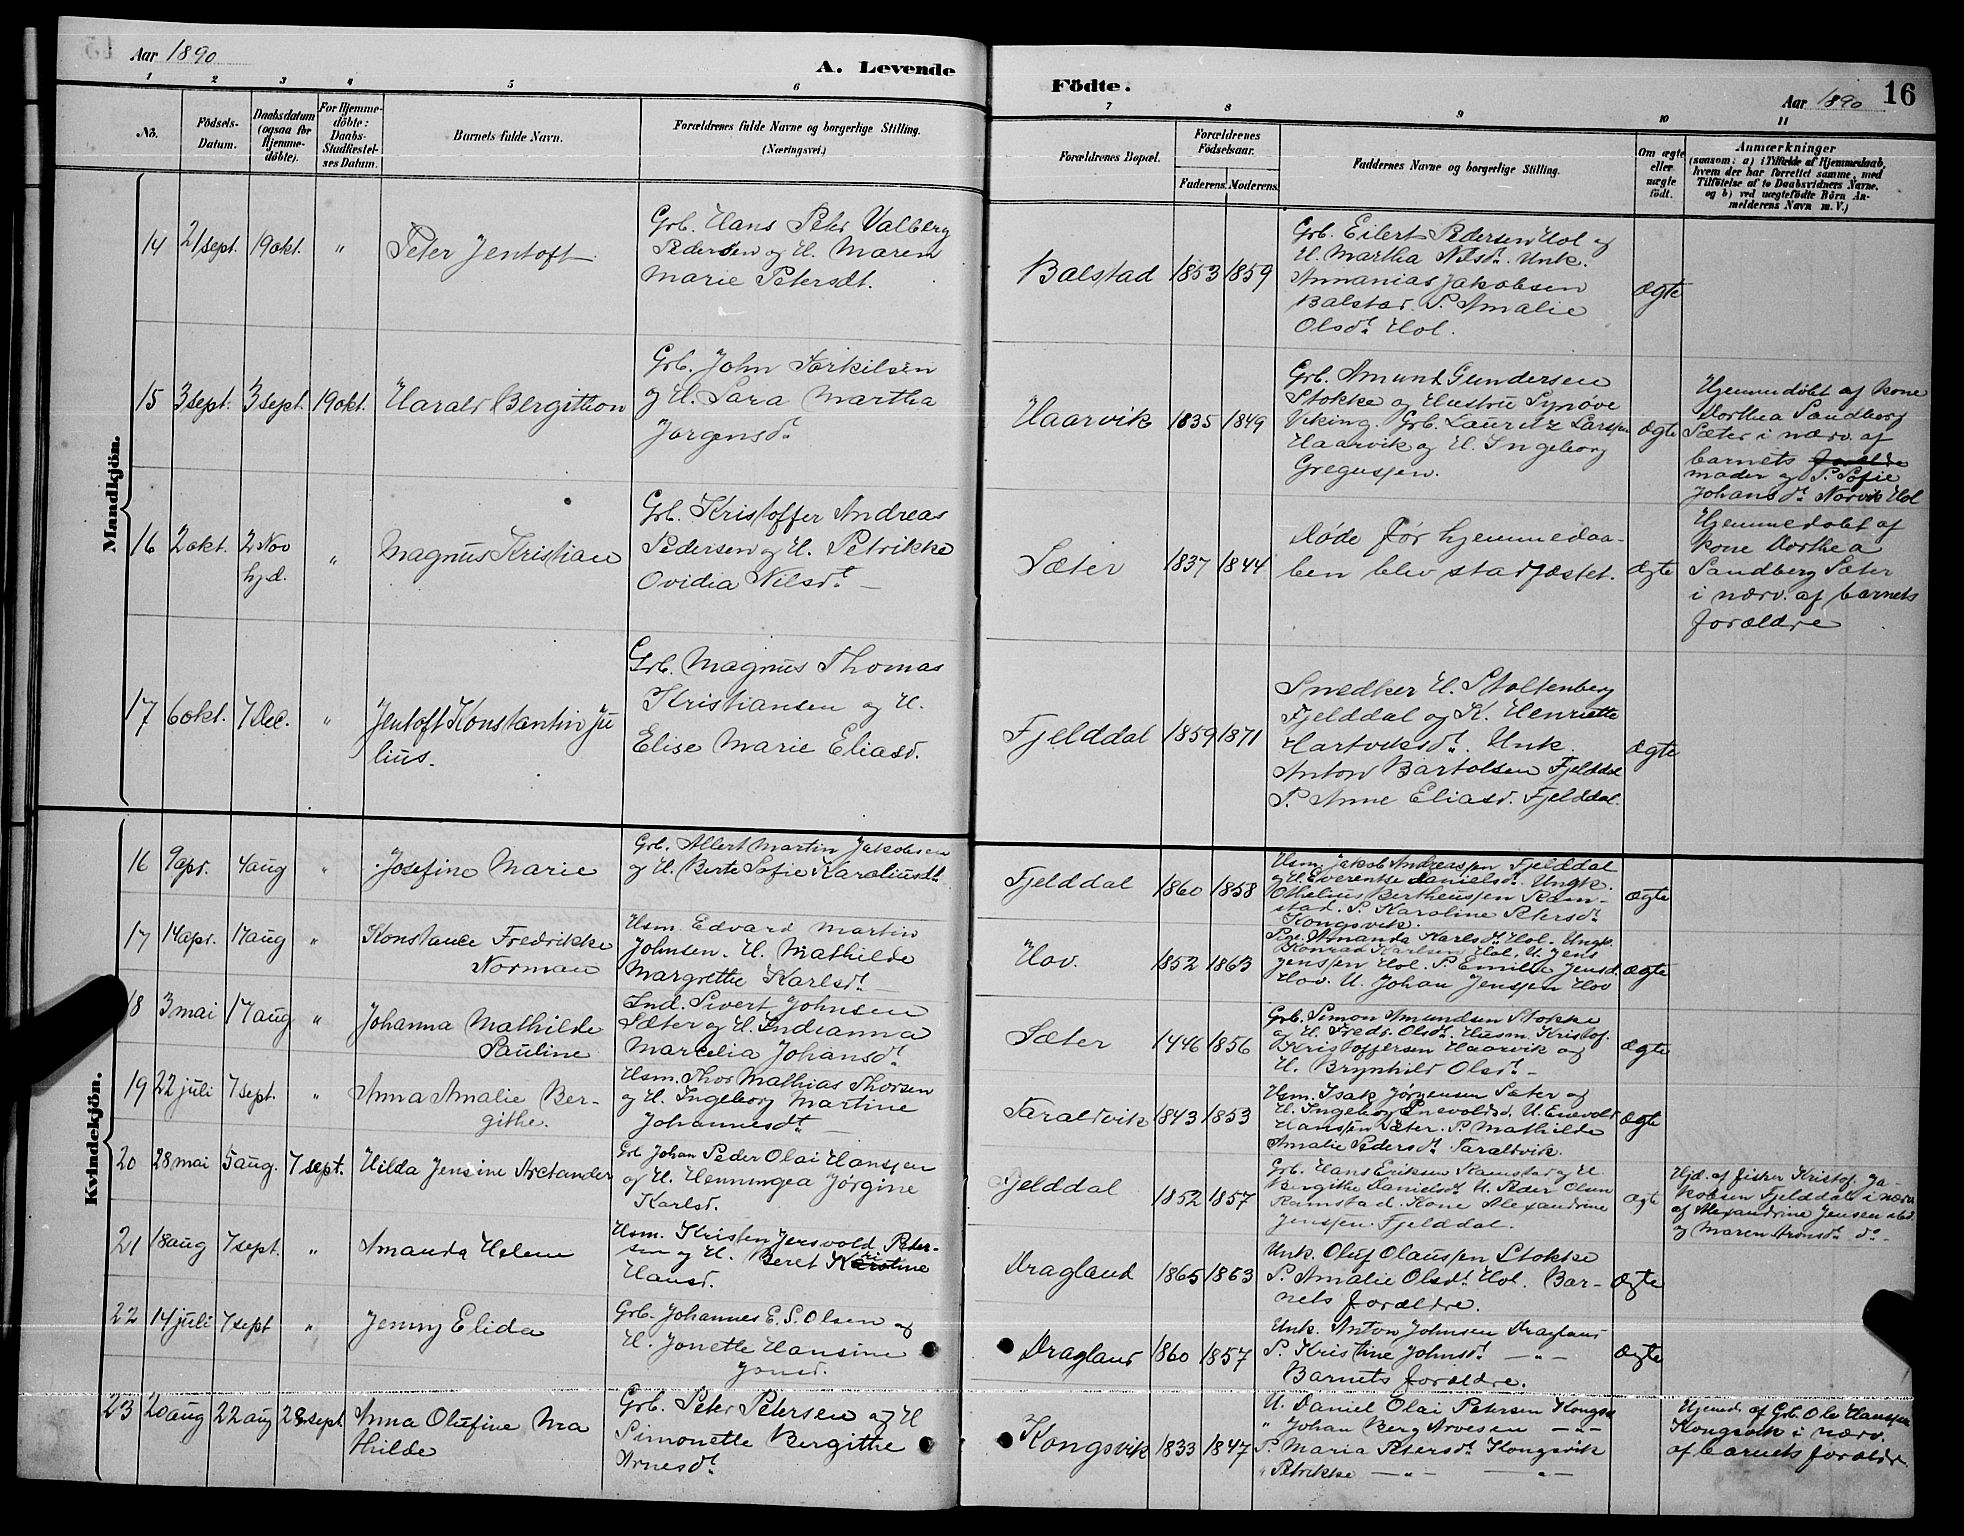 Aar 1890
A. Levende
Födte.
Aar 1890
16
1 2 3 4 5 6 7 8 9 10 11
No.
Födsels-
Datum.
Daabsdatum
(ogsaa for
Hjemme-
döbte).
For Hjemme-
döbte:
Daabs-
Stadfæstel-
ses Datum.
Barnets fulde Navn.
Forældrenes fulde Navne og borgerlige Stilling.
(Næringsvei.)
Forældrenes Bopæl.
Forældrenes
Födselsaar.
Faderens. Moderens.
Faddernes Navne og borgerlige Stilling.
Om ægte
eller
uægte
födt.
Anmærkninger
(saasom: a) i Tilfælde af Hjemmedaab,
hvem der har forrettet samme, med
Tilföielse af to Daabsvidners Navne,
og b) ved uægtefödte Börn An-
melderens Navn m. V.)
Mandkjön.
14 21 sept. 19 okt. " Peter Jentoft
Grb. Hans Peter Valberg
Pedersen og H. Maren
Marie Petersdt.
Balstad 1853 1859
Grb. Eilert Pedersen Hol og
H. Martha Nilsdt. Unk.
Annanias Jakobsen
Balstad. P. Amalie
Olsdt Hol.
ægte
15 3 sept. 3 sept. 19 okt. Harald Bergithon
Grb. John Torkilsen
og H. Sara Martha
Jørgensdt
Haarvik 1835 1849
Grb. Amund Gundersen
Stokke og Hustru Synøve
Viking. Grb. Lauritz Larssen
Haarvik og H. Ingeborg
Gregussen.
ægte
Hjemmedøbt af kone
Dorthea Sandberg
Sæter i nærv. af
barnets foreldre
moder og P. Sofie
Johansdt Norvik Hol
16 2 okt. 2 Nov
hjd.
" Magnus Kristian
Grb. Kristoffer Andreas
Pedersen og H. Petrikke
Ovidia Nilsdt —
Sæter 1837 1844
Døde før hjemmedaa-
ben blev stadfæstet.
ægte
Hjemmedøbt af
kone Dorthea
Sandberg Sæter
i nærv. af barnets
forældre
17 6 okt. 7 Dec. " Jentoft Konstantin Ju
lius.
Grb. Magnus Thomas
Kristiansen og H.
Elise Marie Eliasd.
Fjelddal 1859 1871
Snedker H. Stoltenberg
Fjelddal og K. Henriette
Hartviksdt. Unk.
Anton Bartolsen Fjelddal
P. Anne Eliasd. Fjelddal.
ægte
Kvindekjön.
16 9 apr. 4 aug " Josefine Marie
Grb. Albert Martin Jakobsen
og H. Berte Sofie Karoliusdt
Fjelddal 1860 1858
Hsm. Jakob Andreassen Fjelddal
og H. Everentse Danielsdt. Ungk.
Othelius Bertheussen Ram-
stad. P. Karoline Petersdt
Kongsvik.
ægte
17 14 apr. 17 aug " Konstance Fredrikke
Norman
Hsm. Edvard Martin
Johnsen. H. Mathilde
Margrethe Karlsdt. —
Hov. 1852 1863
Pige Amanda Karlsdt Hol. Ungk.
Konrad Karlsen Hol. U. Jens
Jenssen Hol. P. Emilie Jensd.
Hov. U. Johan Jenssen Hov
ægte
18 3 mai 17 aug " Johanna Mathilde
Pauline
Ind. Sivert Johnsen
Sæter og H. Indianna
Marcelia Johansdt
Sæter 1446 1856
Grb. Simon Amundsen Stokke
og H. Fredr. Olsdt. Husm. Kristof.
Kristoffersen Haarvik og
H. Brynhild Olsdt —
ægte
19 22 juli 7 sept. " Anna Amalie Ber-
githe.
Hsm. Thor Mathias Thorsen
og H. Ingeborg Martine
Johannesdt —
Taraldvik 1843 1853
Hsm. Isak Jørgensen Sæter og
H. Ingeborg Enevoldsd. U. Enevold
Hanssen Sæter. P. Mathilde
Amalie Pedersdt Taraldvik.
ægte
20 28 mai 5 aug. 7 sept. Hilda Jensine Arctander
Grb. Johan Peder Olai Hanssen
og H. Henningea Jørgine
Karlsd.
Fjelddal 1852 1857
Grb. Hans Eriksen Ramstad og H
Bergithe Danielsdt. U. Peder Olsen
Ramstad. Kone Alexandrine
Jenssen. Fjelddal.
ægte
Hjd. af fisker Kristof. Ja-
kobsen Fjelddal i nærv
af Alexandrine Jensen sted.
og Maren Aronsdt do —
21 18 aug 7 sept. " Amanda Helene
Hsm. Kristen Jensvold Peter-
sen og H. Beret Karoline
Hansd.
Dragland 1865 1863
Unk. Oluf Olaussen Stokke
P. Amalie Olsdt Hol. Bar-
nets forældre.
ægte
22 14 juli 7 sept " Jenny Elida
Grb. Johannes E. S. Olsen og
H. Jonette Hansine
Jonsd.
Dragland 1860 1857
Unk. Anton Johnsen Dragland
P. Kristine Johnsdt — " —
Barnets forældre.
ægte
23 20 aug 22 aug 28 sept. Anna Olufine Ma
thilde
Grb. Peter Petersen og H
Simonette Bergithe
Arnesdt
Kongsvik 1833 1847
U. Daniel Olai Petersen Kongsv
" Johan Berg Arnesen — " —
P. Maria Petersdt Kongsvik
" Petrikke — " — — " —
Hjemd. af Grb. Ole Hanssen
Kongsvik i nærv.
af barnets forældr.